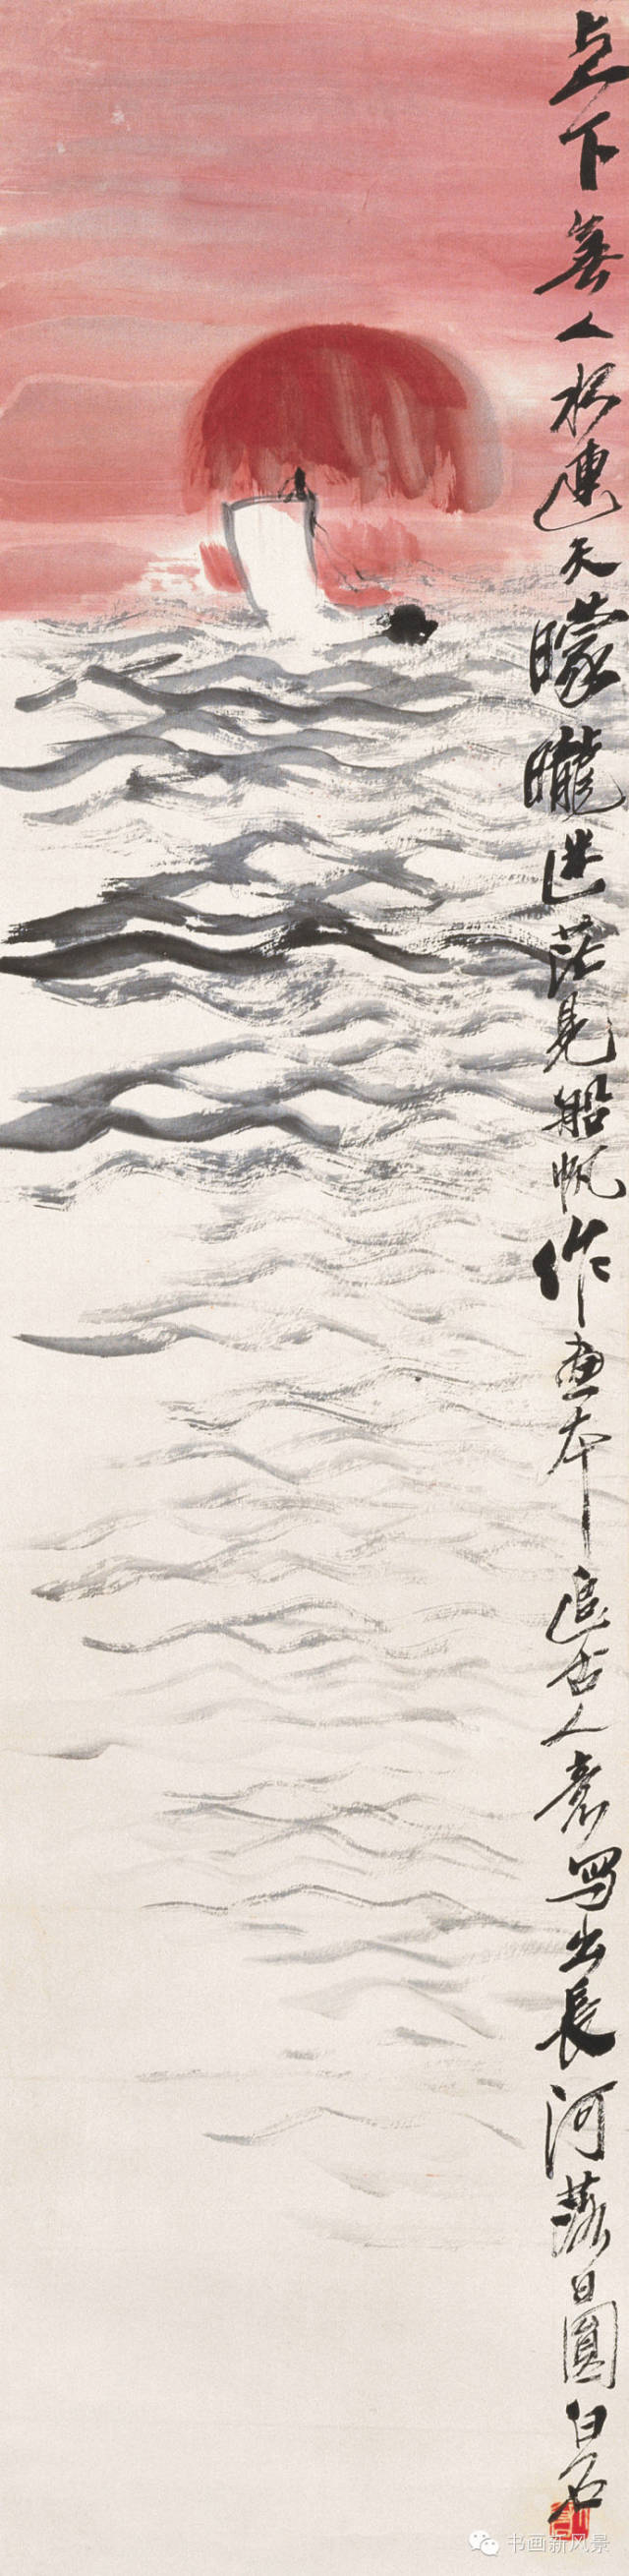 下無人水連天曚曨迷茫見船帆作畫本追古人意寫出長河落日圓白石
书画新风景